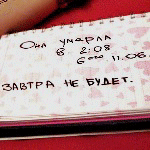 Она умерла
в 2:08
6ººº 11.06.
ЗАВТРА НЕ БУДЕТ.